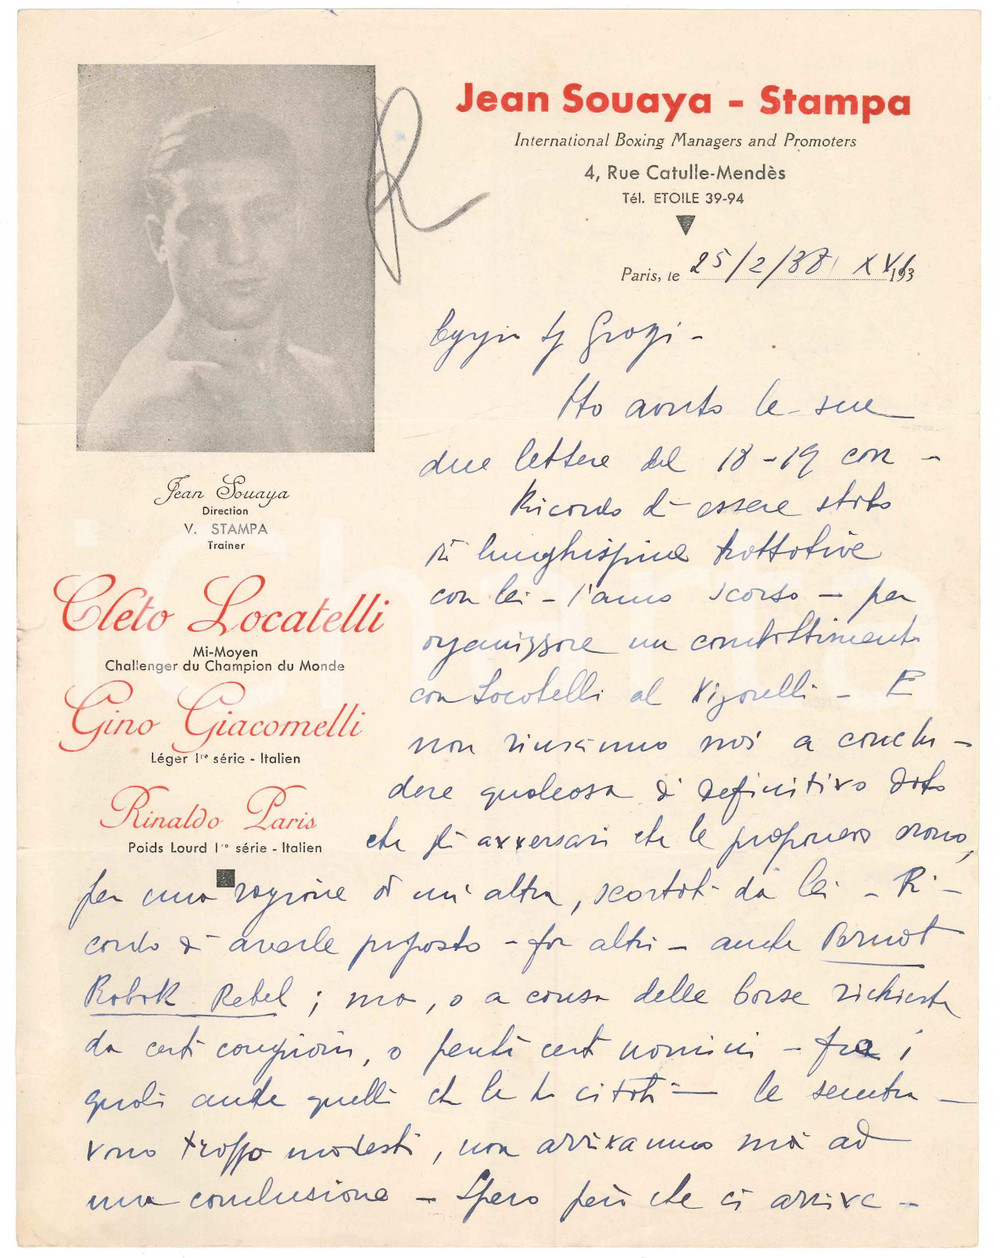 Jean Souaya - Stampa
International Boxing Managers and Promoters
4, Rue Catulle-Mendès
Tél. ETOILE 39-94
Paris, le 25/2/38 XVI 193
Sig Grogi -
Ho avuto le sue
due lettere del 18-19 corr -
Ricordo di essere stato
in lunghissime trattative
con lei - l'anno scorso - per
organizzare un combattimento
con Locatelli al Vigorelli - E
non riuscimmo mai a conclu -
dere qualcosa di definitivo dato
che gli avversari che le proponevo erano,
per una ragione o per un'altra, scartati da lei - Ri -
cordo di averle proposto - fra altri - anche
Robert Rebel ; ma, o a causa delle borse richieste
da certi campioni, o perché certi nomini - fra i
quali anche quelli che le ho citati - le sembra -
vano troppo modesti, non arrivammo mai ad
una conclusione - Spero però che ci arrive -
Jean Souaya
Direction
V. STAMPA
Trainer
Cleto Locatelli
Mi-Moyen
Challenger du Champion du Monde
Gino Giacomelli
Léger 1re série - Italien
Rinaldo Paris
Poids Lourd 1re série - Italien